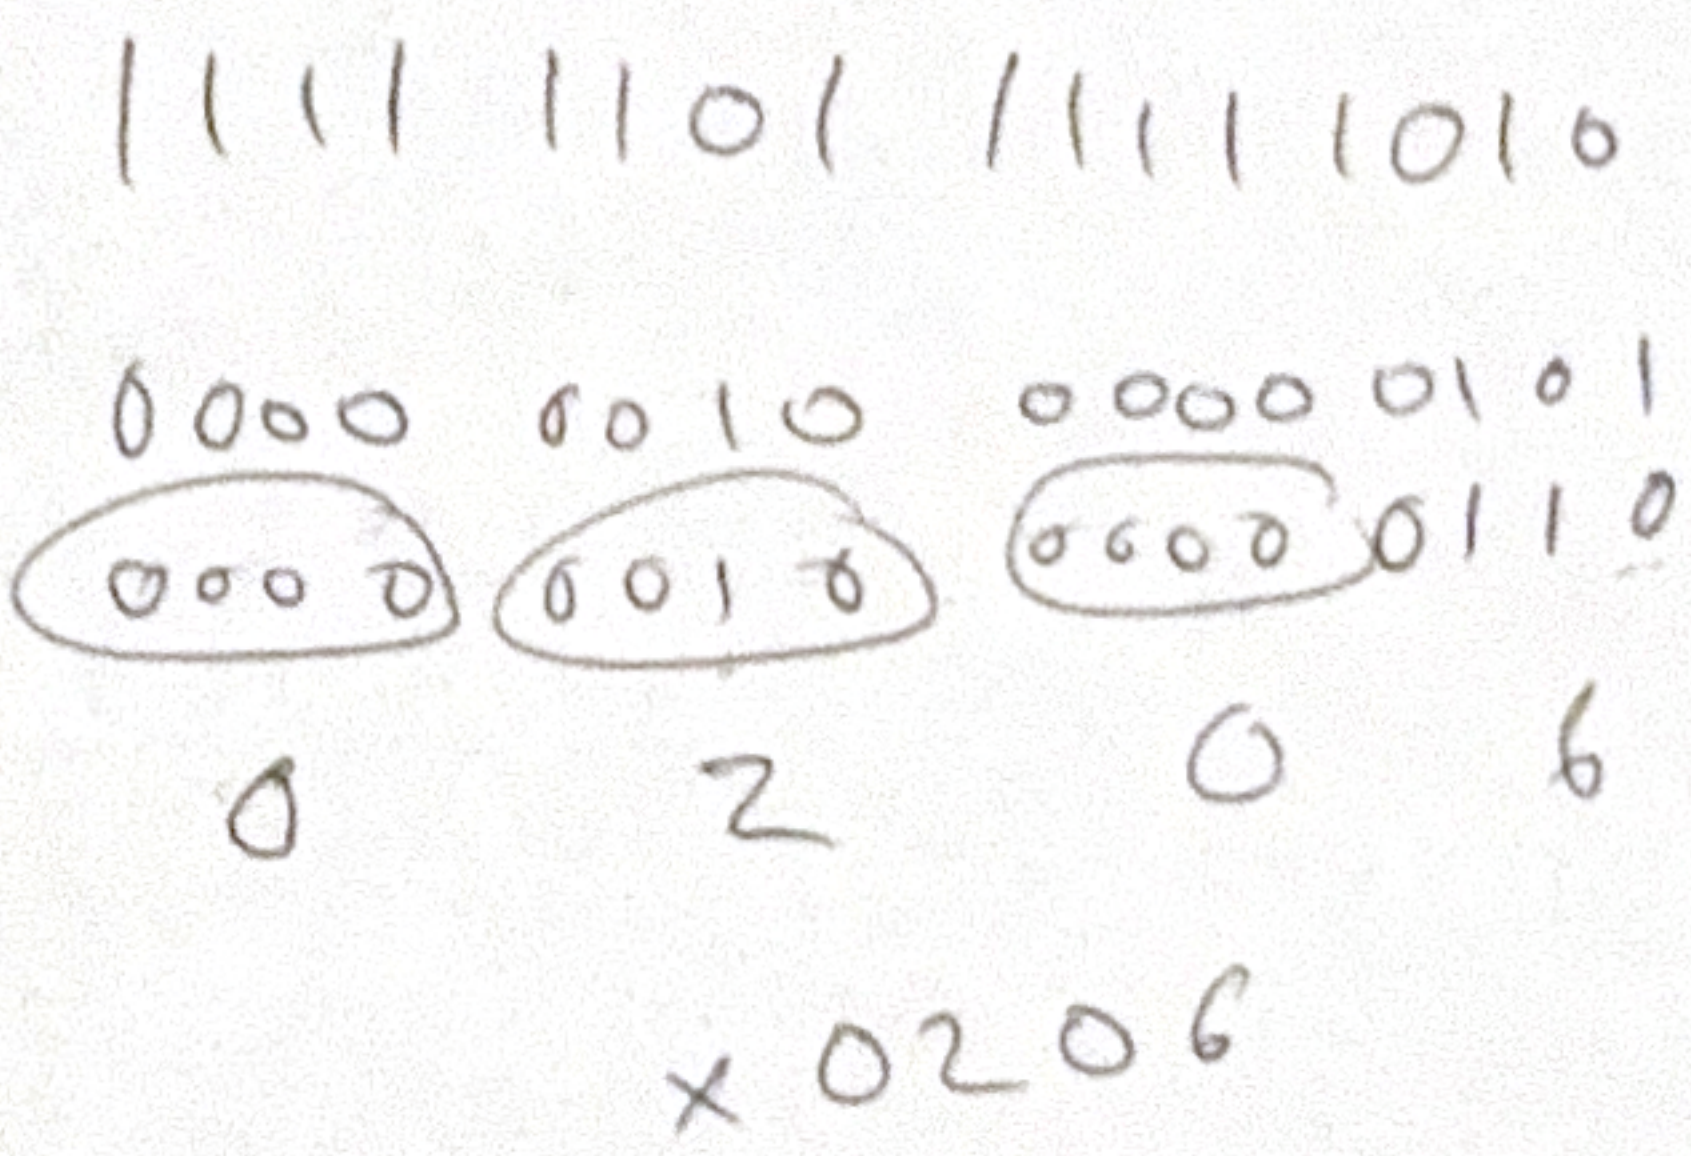 1111 1101 1111 1010
0000 0010 0000 0101
0000 0010 0000 0110
0 2 0 6
x0206